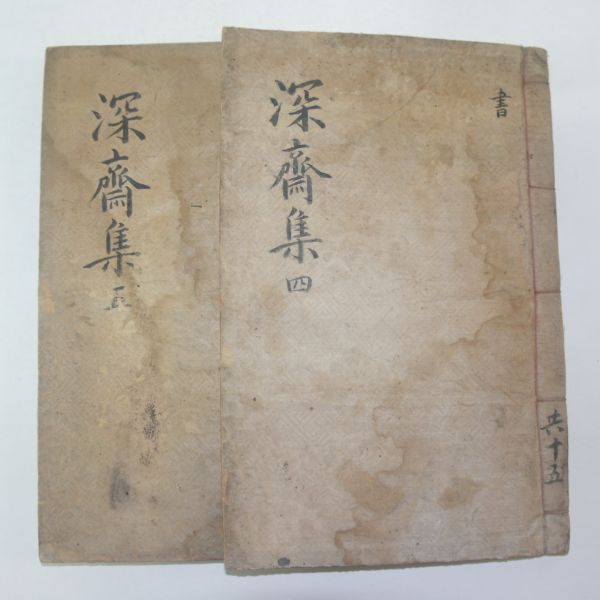 書
深齋集
四
共十五
深齋集
五